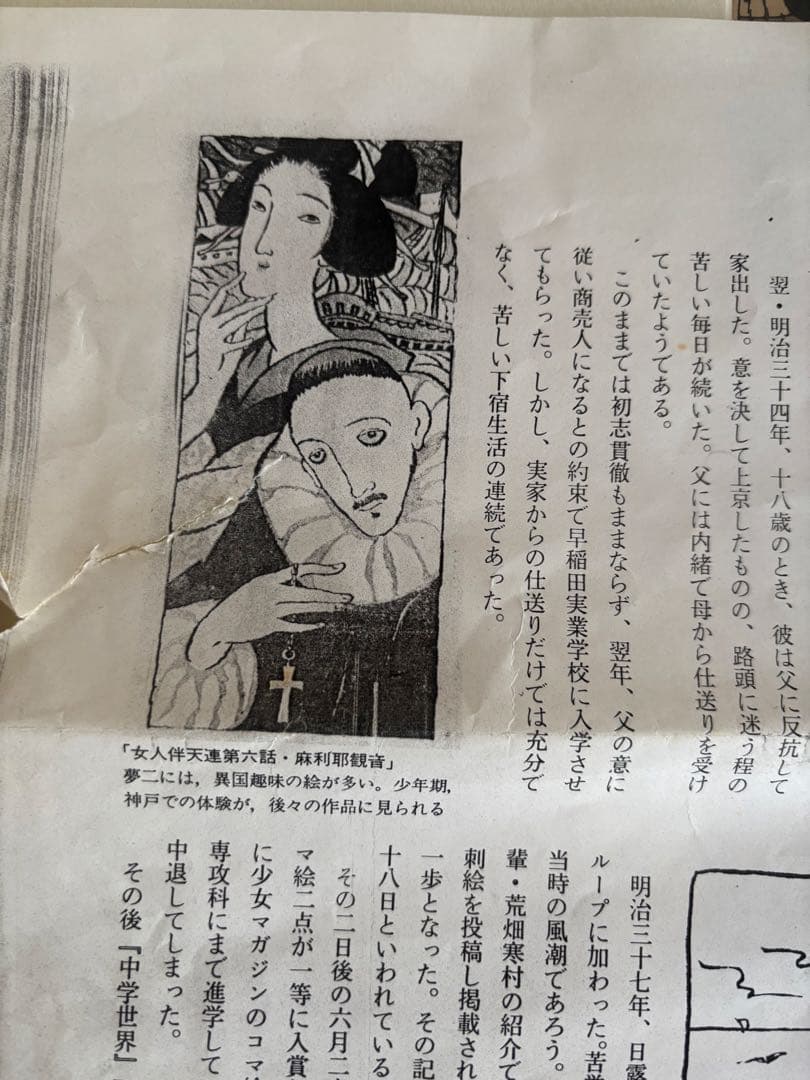 翌・明治三十四年、十八歳のとき、彼は父に反抗して
家出した。意を決して上京したものの、路頭に迷う程の
苦しい毎日が続いた。父には内緒で母から仕送りを受け
ていたようである。
このままでは初志貫徹もままならず、翌年、父の意に
従い商売人になるとの約束で早稲田実業学校に入学させ
てもらった。しかし、実家からの仕送りだけでは充分で
なく、苦しい下宿生活の連続であった。
「女人伴天連第六話・麻利耶観音」
夢二には，異国趣味の絵が多い。少年期，
神戸での体験が，後々の作品に見られる
明治三十七年、日露
ループに加わった。苦学
当時の風潮であろう。
輩・荒畑寒村の紹介で
刺絵を投稿し掲載され
一歩となった。その記
十八日といわれている
その二日後の六月二
マ絵二点が一等に入賞
に少女マガジンのコマ絵
専攻科にまで進学して
中退してしまった。
その後『中学世界』